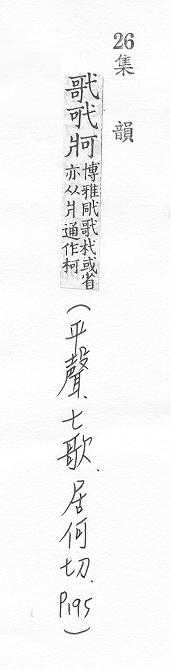 26
集韻
㢦牁
博雅㢦杙或省
亦从爿通作柯
(平聲.七歌.居何切.P195)